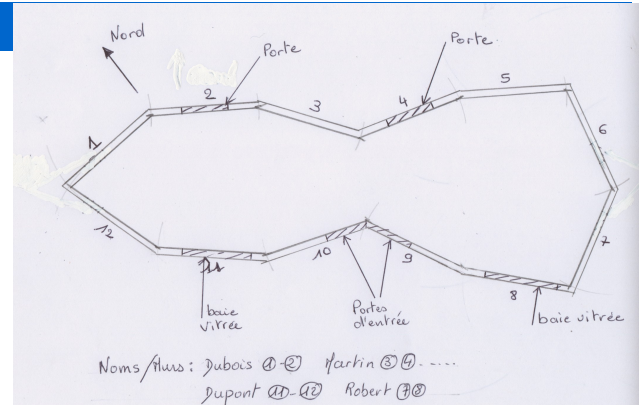 Nord
Porte
Porte.
1
2
3
4
5
6
7
8
9
10
11
12
baie
vitrée
Portes
d'entrée
baie vitrée
Noms/Murs : Dubois ①-② Martin ③④.....
Dupont ⑪-⑫ Robert ⑦⑧